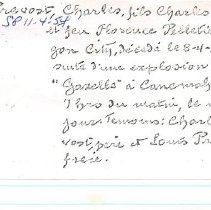 Prevost, Charles, fils Charles
SP 11-4-54
et feu Florence Pelletie
gon City, décédé le 8-4-
suite d'une explosion
"Gazelle" à Canemah
7 hrs du matin, le
jour. Temoins: Charl
vost, père et Louis Pr
frère.